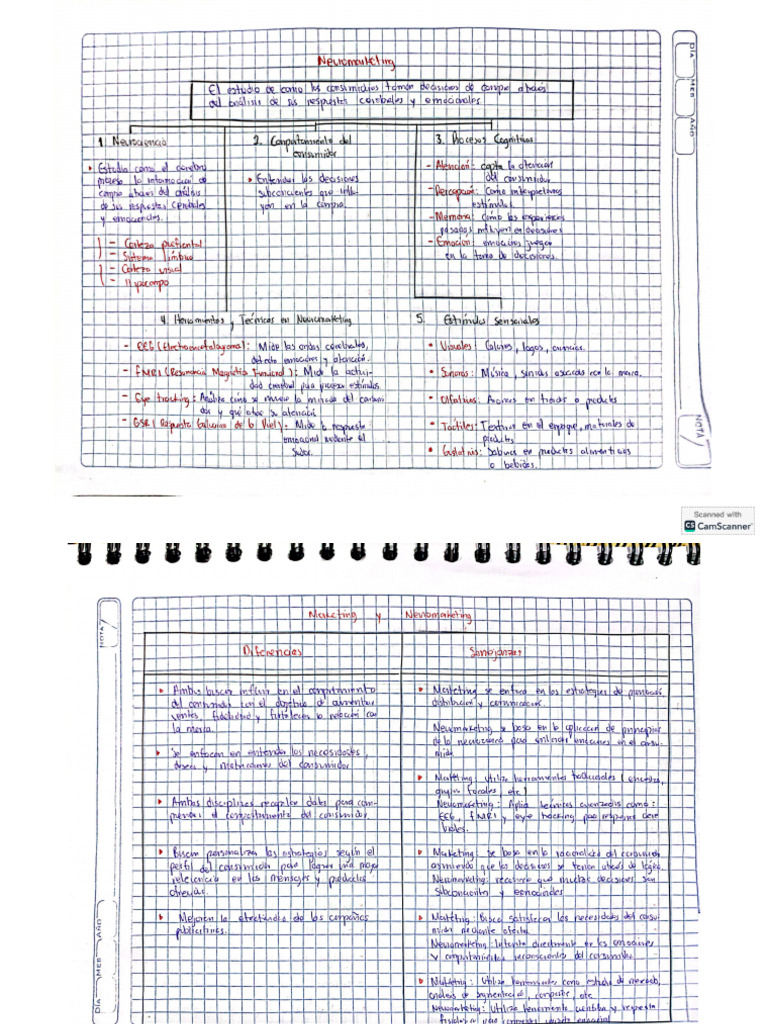 Neuromarketing
El estudio de como los consumidores toman decisiones de compra através
del análisis de sus respuestas cerebrales y emocionales
1. Neurociencia
• Estudia como el cerebro
procesa la información de
compra através del análisis
de sus respuestas cerebrales
y emocionales.
- Corteza prefrontal
- Sistema límbico
- Corteza visual
- Hipocampo
2. Comportamiento del
consumidor
• Entender las decisiones
subconscientes que influ-
yen en la compra.
3. Procesos Cognitivos
- Atención: capta la atención
del consumidor
- Percepción: Como interpretamos
estímulos
- Memoria: cómo las experiencias
pasadas influyen en decisiones
- Emoción: emociones juegan
en la toma de decisiones.
4. Herramientas y Tecnicas en Neuromarketing
- EEG (Electroencefalograma): Mide las ondas cerebrales,
detecta emociones y atención.
- fMRI (Resonancia Magnética Funcional): Mide la activi-
dad cerebral para procesar estímulos.
- Eye tracking: Analiza como se mueve la mirada del consumi-
dor y qué atrae su atención
- GSR (Respuesta Galvanica de la Piel): Mide la respuesta
emocional mediante el
sudor.
5. Estímulos Sensoriales
• Visuales: Colores, logos, anuncios.
• Sonoros: Música, sonidos asociados con la marca.
• Olfativos: Aromas en tiendas o productos
• Táctiles: Texturas en el empaque, materiales de
productos
• Gustativos: Sabores en productos alimenticios
o bebidas.
DÍA MES AÑO
NOTA
Scanned with
CS CamScanner
NOTA
Marketing y Neuromarketing
Diferencias
• Ambas buscan influir en el comportamiento
del consumidor con el objetivo de aumentar
ventas, fidelidad y fortalecer la relación con
la marca.
• Se enfocan en entender las necesidades,
deseos y motivaciones del consumidor
• Ambas disciplinas recopilan datos para com-
prender el comportamiento del consumidor.
• Buscan personalizar las estrategias según el
perfil del consumidor para lograr una mayor
relevancia en los mensajes y productos
• Mejoran la efectividad de las campañas
publicitarias.
Semejanzas
• Marketing se enfoca en las estrategias de
distribución y comunicación.
Neuromarketing se basa en la aplicación de principios
de la neurociencia para emociones en el consu-
midor
• Marketing: Utiliza herramientas tradicionales (encuestas,
grupos focales, etc)
Neuromarketing: Aplica tecnicas avanzadas como:
EEG, fMRI y eye tracking para respuestas cere-
brales.
• Marketing: se basa en la racionalidad del consumidor
asumiendo que las decisiones se toman através de lógica.
Neuromarketing: reconoce que muchas decisiones son
subconscientes y emocionales
• Marketing: Busca satisfacer las necesidades del consu-
midor mediante ofertas
Neuromarketing: Intenta directamente en las emociones
y comportamientos inconscientes del consumidor.
• Marketing: Utiliza herramientas como estudio de mercado,
análisis de segmentación, campañas, etc
Neuromarketing: Utiliza y respuesta
DÍA MES AÑO